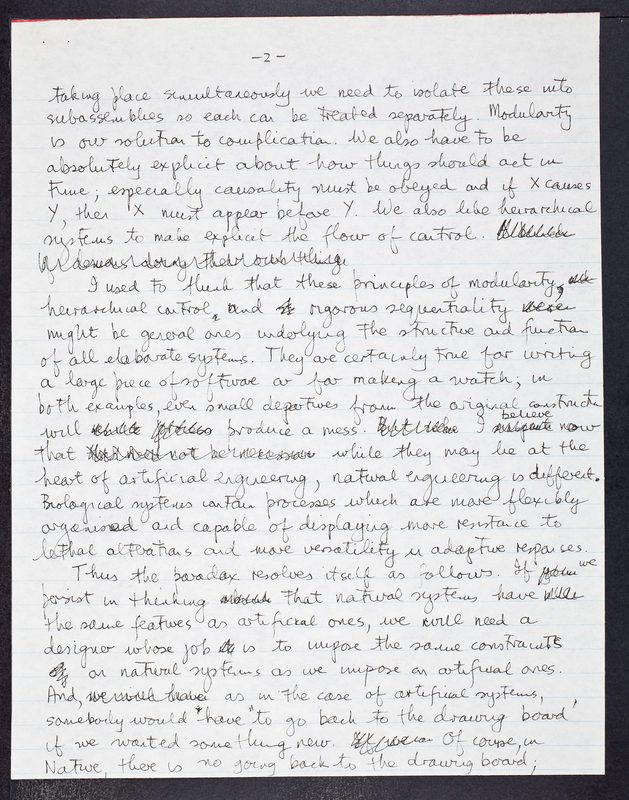 -2-
taking place simultaneously we need to isolate these into
subassemblies so each can be treated separately. Modularity
is our solution to complication. We also have to be
absolutely explicit about how things should act in
time; especially causality must be obeyed and if X causes
Y, then X must appear before Y. We also like heirarchical
systems to make explicit the flow of control.
doing their own thing
I used to think that these principles of modularity,
heirarchical control, and rigorous sequentiality were
might be general ones underlying the structure and function
of all elaborate systems. They are certainly true for writing
a large piece of software or for making a watch; in
both examples, even small departures from the original constructs
will produce a mess. But I believe now
that not be necessary while they may lie at the
heart of artificial engineering, natural engineering is different.
Biological systems contain processes which are more flexibly
organised and capable of displaying more resistance to
lethal alterations and more versatility in adaptive responses.
Thus the paradox resolves itself as follows. If we
persist in thinking that natural systems have
the same features as artificial ones, we will need a
designer whose job is to impose the same constraints
on natural systems as we impose on artificial ones.
And, we would have as in the case of artificial systems,
somebody would "have" to go back to the drawing board
if we wanted something new. Of course, in
Nature, there is no going back to the drawing board;